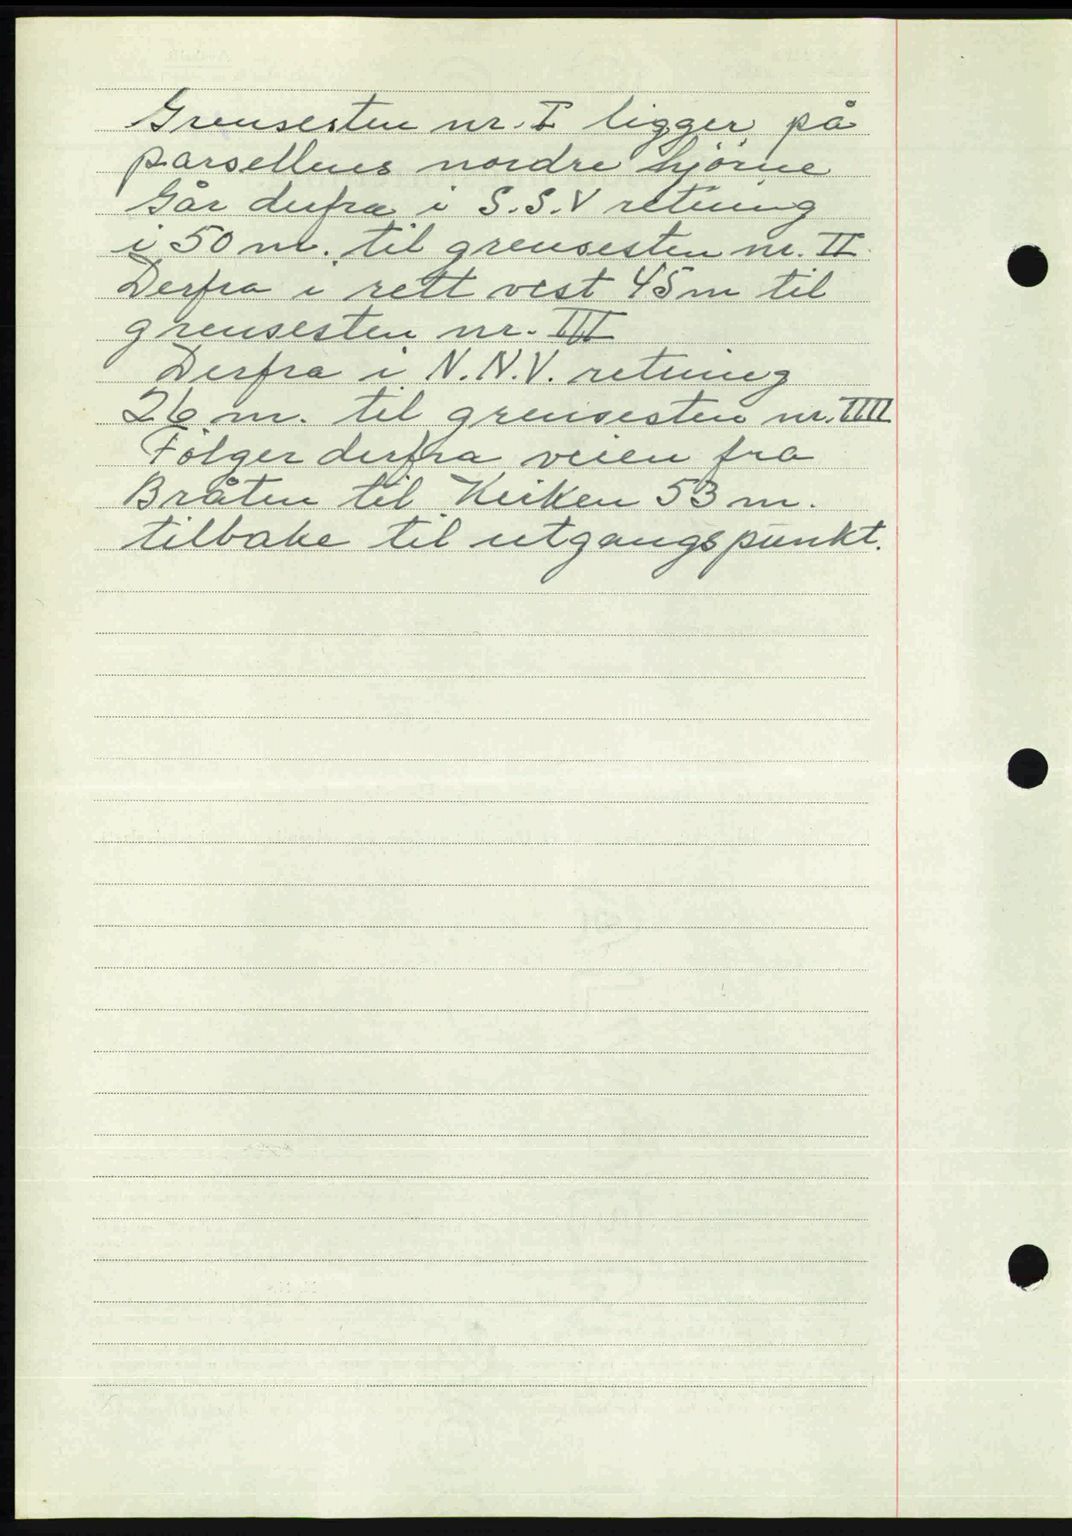 Grensesten nr. I ligger på
parsellens nordre hjörne
Går derfra i S.S.V retning
i 50 m. til grensesten nr. II
Derfra i rett vest 45 m til
grensesten nr. III
Derfra i N.N.V. retning
26 m. til grensesten nr. IIII
Fölger derfra veien fra
Bråten til Kirken 53 m.
tilbake til utgangspunkt.